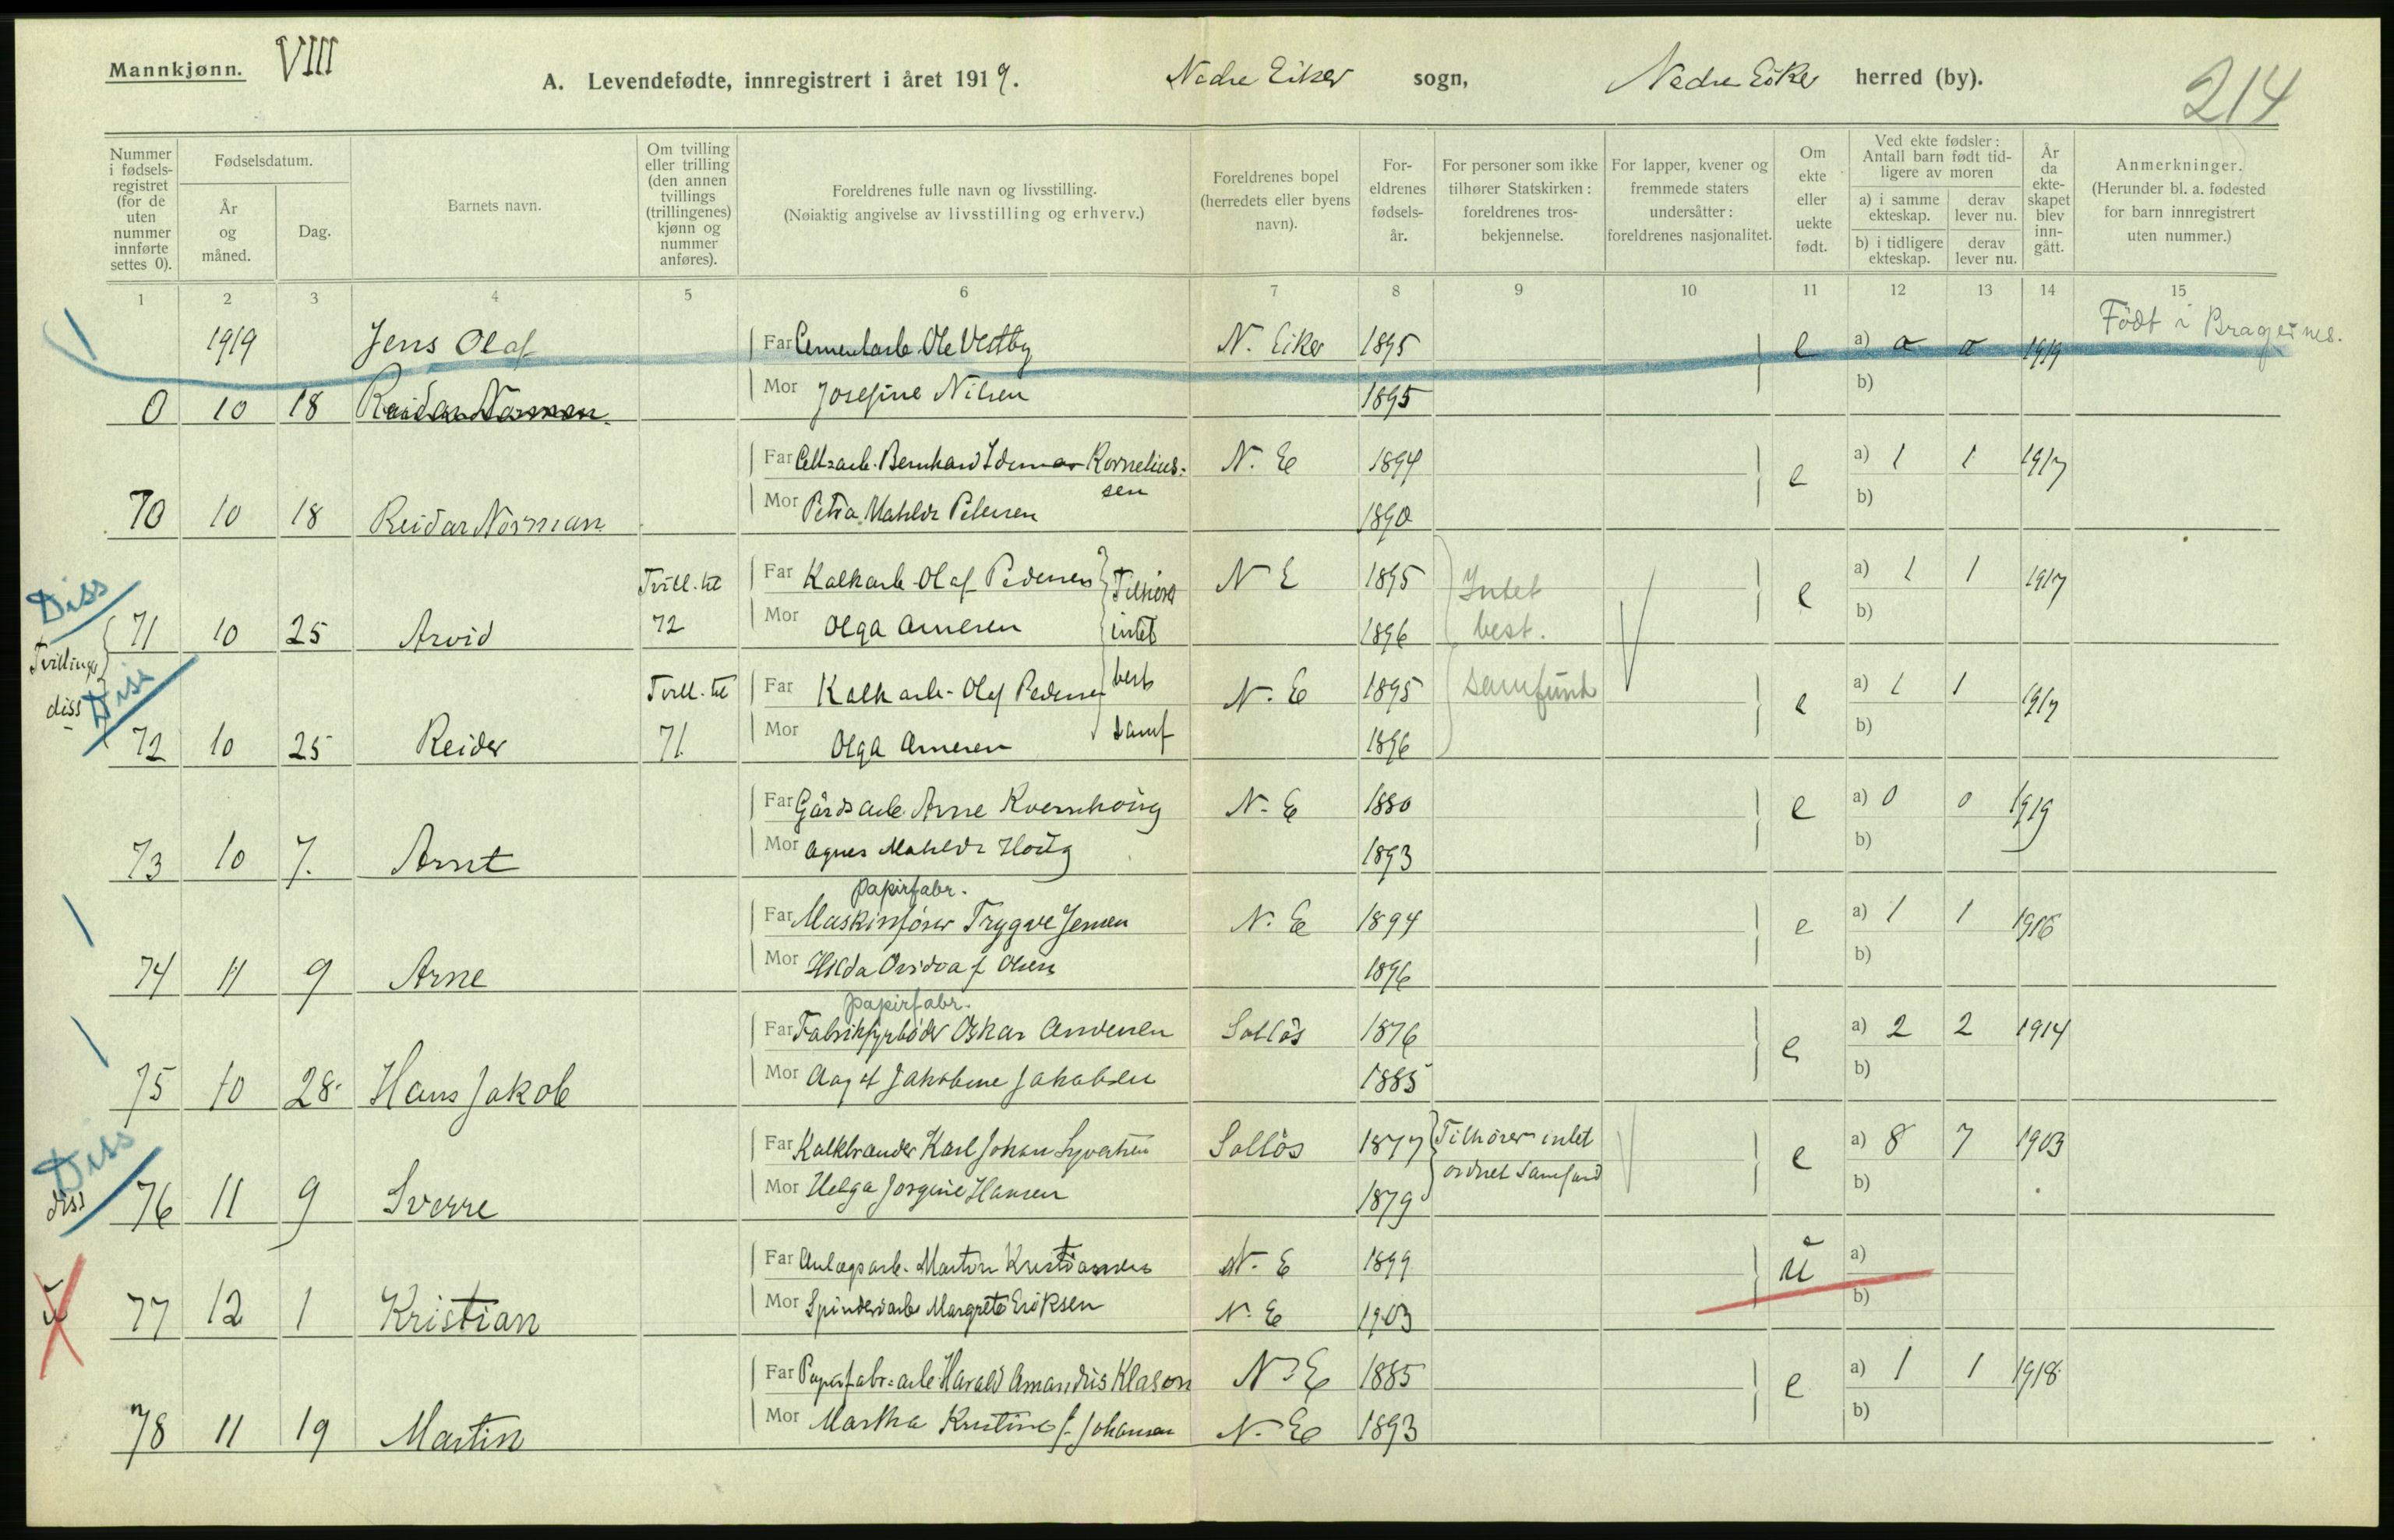 Mannkjønn. VIII
A. Levendefødte, innregistrert i året 1919. Nedre Eiker sogn, Nedre Eiker herred (by). 214
Nummer i fødsels-registret (for de uten nummer innførte settes 0).
Fødselsdatum.
År og måned.
Dag.
Barnets navn.
Om tvilling eller trilling (den annen tvillings (trillingenes) kjønn og nummer anføres).
Foreldrenes fulle navn og livsstilling.
(Nøiaktig angivelse av livsstilling og erhverv.)
Foreldrenes bopel (herredets eller byens navn).
For-eldrenes fødsels-år.
For personer som ikke tilhører Statskirken: foreldrenes tros-bekjennelse.
For lapper, kvener og fremmede staters undersåtter: foreldrenes nasjonalitet.
Om ekte eller uekte født.
Ved ekte fødsler: Antall barn født tid-ligere av moren
a) i samme ekteskap. derav lever nu.
b) i tidligere ekteskap. derav lever nu.
År da ekte-skapet blev inn-gått.
Anmerkninger.
(Herunder bl. a. fødested for barn innregistrert uten nummer.)
1 2 3 4 5 6 7 8 9 10 11 12 13 14 15
1919 Jens Olaf Far Cementarb. Ole Vestby N. Eiker 1895 e a) o o 1919 Født i Bragernes.
0 10 18 Reidar Norman Mor Josefine Nilsen 1895 b)
Far Cell=arb. Bernhard Kornelius= N. E 1894 e a) 1 1 1917
sen
70 10 18 Reidar Norman Mor Petra Mathilde Petersen 1890 b)
Diss Tvill. til Far Kalkarb. Olaf Pedersen Tilhører N E 1895 Intet e a) 1 1 1917
71 10 25 Arvid 72 Mor Olga Arnesen intet 1896 best. b)
Tvillinger
diss Diss Tvill. til Far Kalkarb. Olaf Pedersen best N. E 1895 samfund e a) 1 1 1917
72 10 25 Reider 71 Mor Olga Arnesen samf 1896 b)
Far Gårdsarb. Arne Kvernhoug N. E 1880 e a) 0 0 1919
73 10 7. Arnt Mor Agnes Mathilde Houg 1893 b)
papirfabr.
Far Maskinfører Trygve Jensen N. E 1894 e a) 1 1 1916
74 11 9 Arne Mor Hilda f Olsen 1896 b)
papirfabr.
Far Fabrikfyrbøder Oskar Andersen Solløs 1876 e a) 2 2 1914
75 10 28. Hans Jakob Mor Aagot Jakobine Jakobsen 1885 b)
Diss Far Kalkbrander Karl Johan Syvertsen Solløs 1877 Tilhører intet e a) 8 7 1903
ordnet samfund
diss 76 11 9 Sverre Mor Helga Jorgine Hansen 1879 b)
Far Anlægsarb. Martin Kristiansen N. E 1899 u a)
u 77 12 1 Kristian Mor Spinderiarb Margrete Eriksen N. E 1903 b)
Far Papirfabr=arb. Harald Amandus Klason N. E 1885 e a) 1 1 1918
78 11 19 Martin Mor Martha Kristine f. Johansen N. E 1893 b)